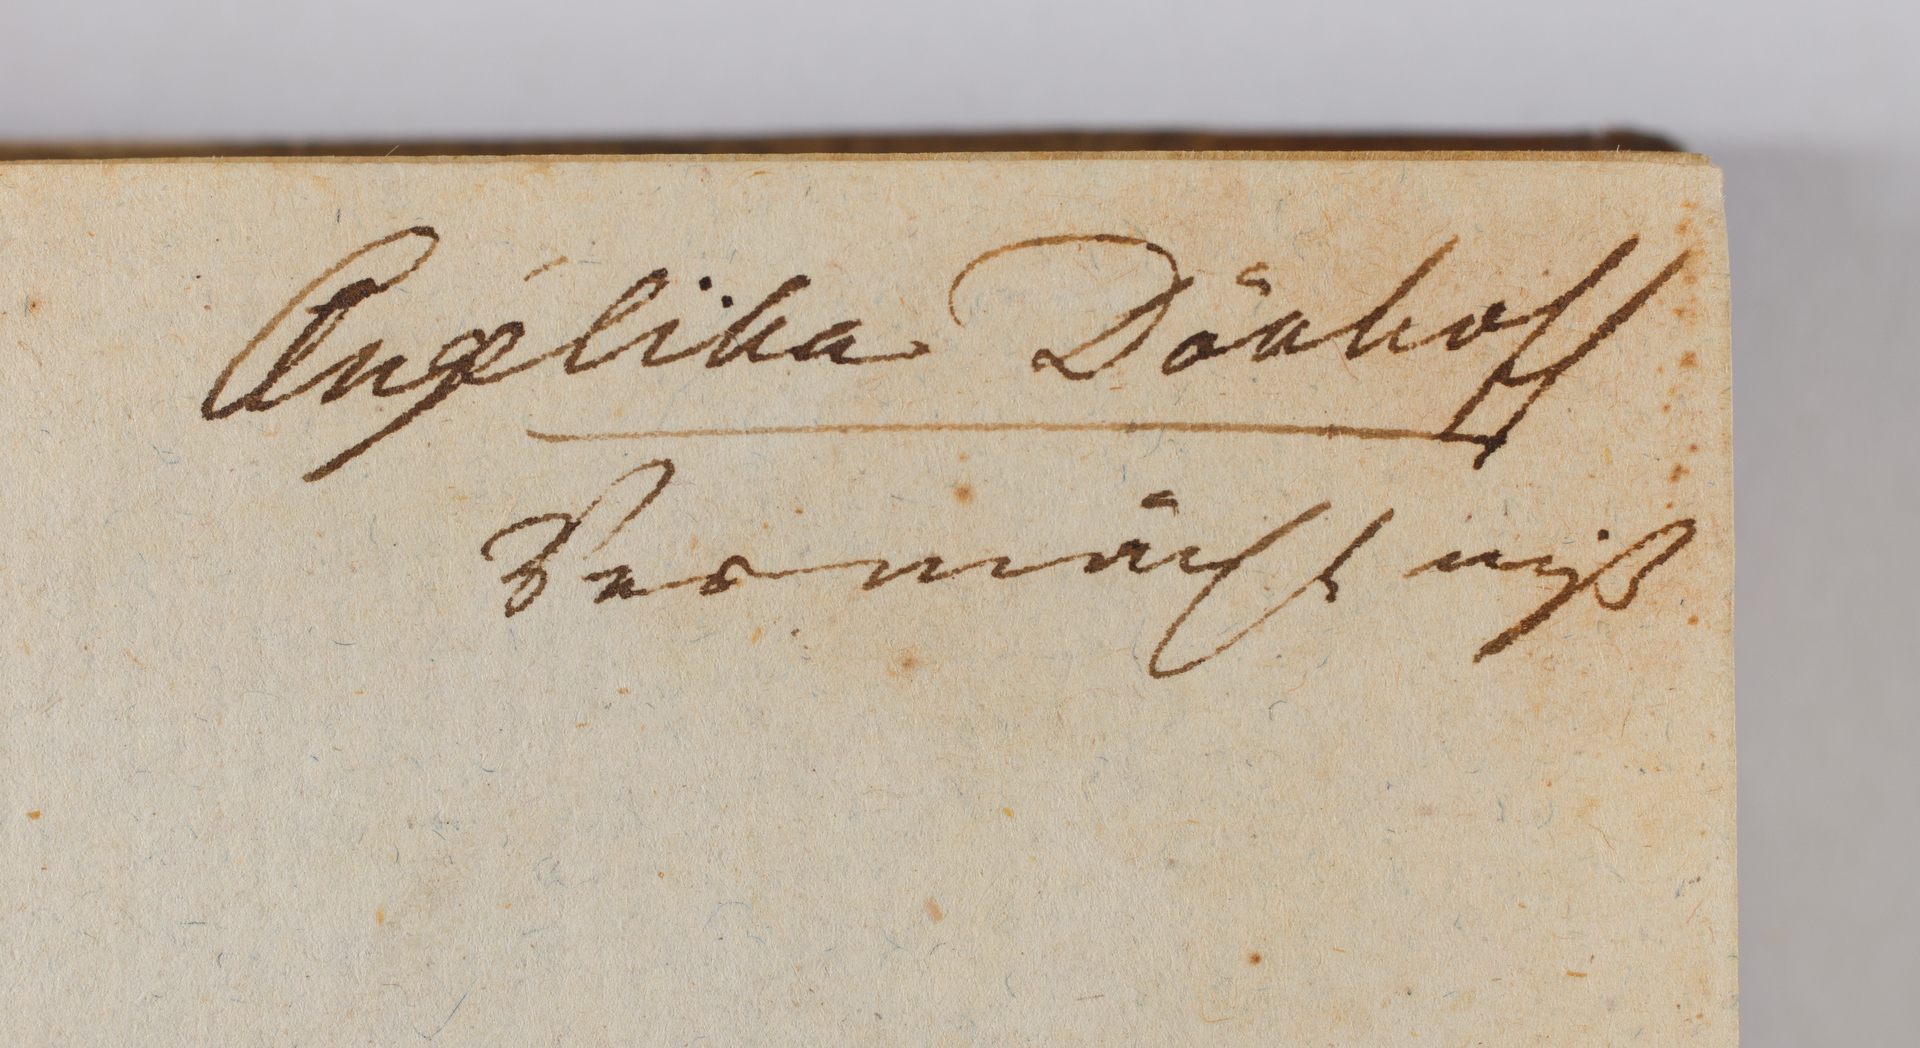 Angélika Dönhoff
Vermächtniß